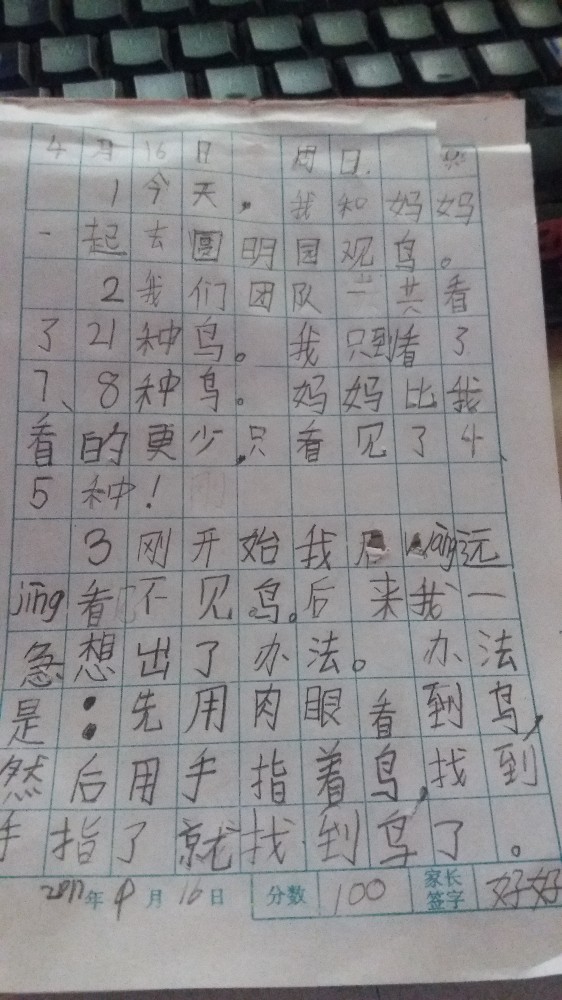 4月16日 周日.
1今天，我和妈妈
一起去圆明园观鸟。
2我们团队一共看
了21种鸟。我只到看了
7、8种鸟。妈妈比我
看的更少,只看见了4、
5种！
3刚开始我用wàng远
jìng看不见鸟。后来我一
急想出了办法。办法
是：先用肉眼看到鸟，
然后用手指着鸟,找到
手指了就找到鸟了。
2017年4月16日 分数 100 家长签字 好好